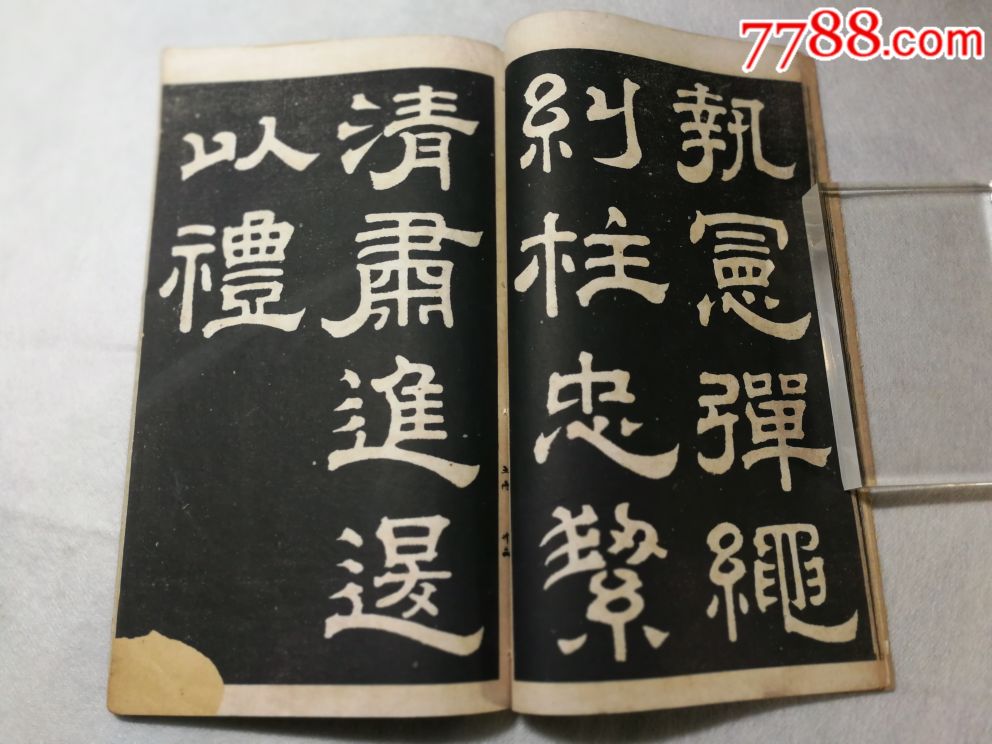 7788.com
執憲彈繩
糾柱忠絜
清肅進退
以禮